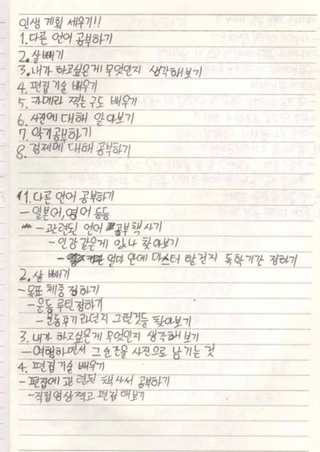 인생 계획 세우기!!
1. 다른 언어 공부하기
2. 살 빼기
3. 내가 하고싶은게 무엇인지 생각해보기
4. 편집 기술 배우기
5. 카메라 찍는 구도 배우기
6. 사진에 대해 알아보기
7. 악기공부하기
8. 경제에 대해 공부하기
1. 다른 언어 공부하기
- 일본어, 영어 등등
- 관련된 언어 책 사기
- 인강 같은게 있나 찾아보기
- 얼마 안에 마스터 할건지 독학기간 정하기
2. 살 빼기
- 목표 체중 정하기
- 운동 루틴 정하기
- 운동기구라던지 그런것들 찾아보기
3. 내가 하고싶은게 무엇인지 생각해 보기
- 여행하면서 그 순간을 사진으로 남기는 것
4. 편집 기술 배우기
- 편집에 관련된 책 사서 공부하기
- 직접 영상 찍고 편집 해보기